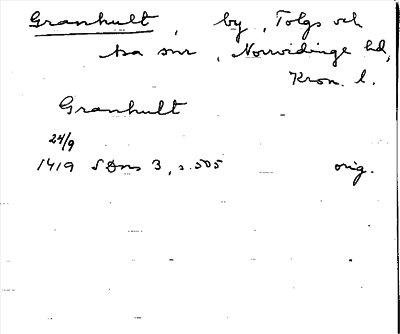 Granhult, by, Tolgs och
Asa snr, Norrvidinge hd,
Kron. l.
Granhult
24/9
1419 SDns 3, s. 505 orig.